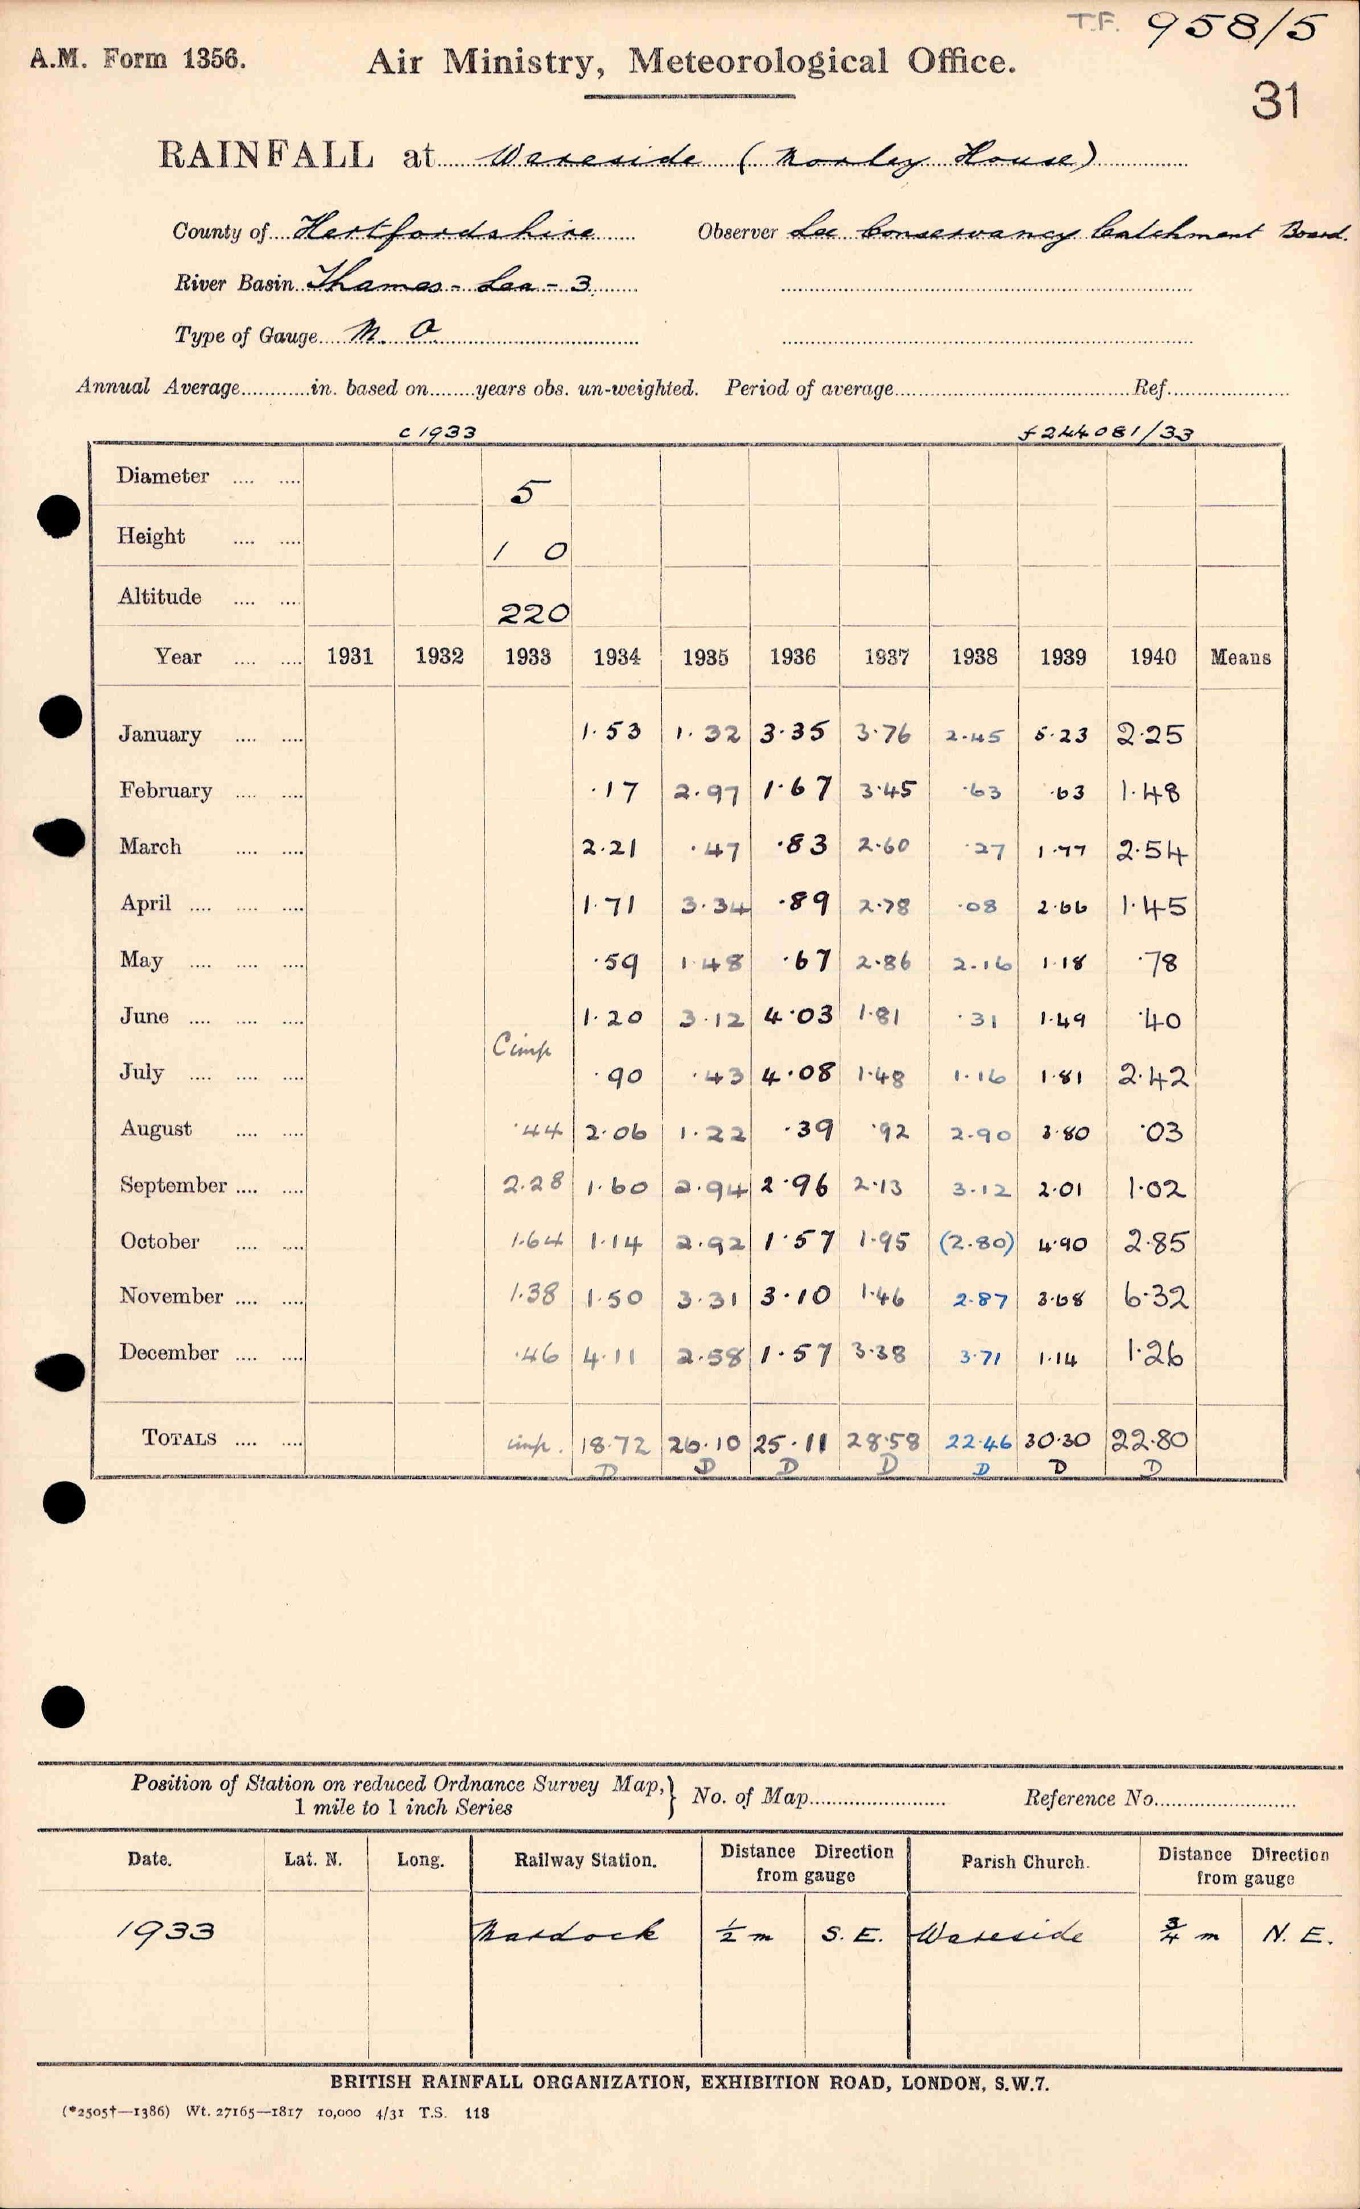 T.F. 958/5
A.M. Form 1356. Air Ministry, Meteorological Office.
31
RAINFALL at Wareside (Morley House)
County of Hertfordshire Observer Lee Conservancy Catchment Board.
River Basin Thames - Lea - 3
Type of Gauge M. O.
Annual Average............in. based on........years obs. un-weighted. Period of average........................Ref.............
c 1933 f 244081/33
Diameter .... .... 5
Height .... .... 1 0
Altitude .... .... 220
Year .... .... 1931 1932 1933 1934 1935 1936 1937 1938 1939 1940 Means
January .... .... 1.53 1.32 3.35 3.76 2.45 5.23 2.25
February .... .... .17 2.97 1.67 3.45 .63 .63 1.48
March .... .... 2.21 .47 .83 2.60 .27 1.77 2.54
April .... .... .... 1.71 3.34 .89 2.78 .08 2.66 1.45
May .... .... .... .59 1.48 .67 2.86 2.16 1.18 .78
June .... .... .... 1.20 3.12 4.03 1.81 .31 1.49 .40
Cimp
July .... .... .... .90 .43 4.08 1.48 1.16 1.81 2.42
August .... .... .44 2.06 1.22 .39 .92 2.90 3.80 .03
September .... .... 2.28 1.60 2.94 2.96 2.13 3.12 2.01 1.02
October .... .... 1.64 1.14 2.92 1.57 1.95 (2.80) 4.90 2.85
November .... .... 1.38 1.50 3.31 3.10 1.46 2.87 3.68 6.32
December .... .... .46 4.11 2.58 1.57 3.38 3.71 1.14 1.26
TOTALS .... .... imp. 18.72 26.10 25.11 28.58 22.46 30.30 22.80
D D D D D D D
Position of Station on reduced Ordnance Survey Map,} No. of Map........................ Reference No.........................
1 mile to 1 inch Series
Date. Lat. N. Long. Railway Station. Distance Direction from gauge Parish Church. Distance Direction from gauge
1933 Mardock ½ m S. E. Wareside ¾ m N. E.
BRITISH RAINFALL ORGANIZATION, EXHIBITION ROAD, LONDON, S.W.7.
(*2505†—1386) Wt. 27165—1817 10,000 4/31 T.S. 118